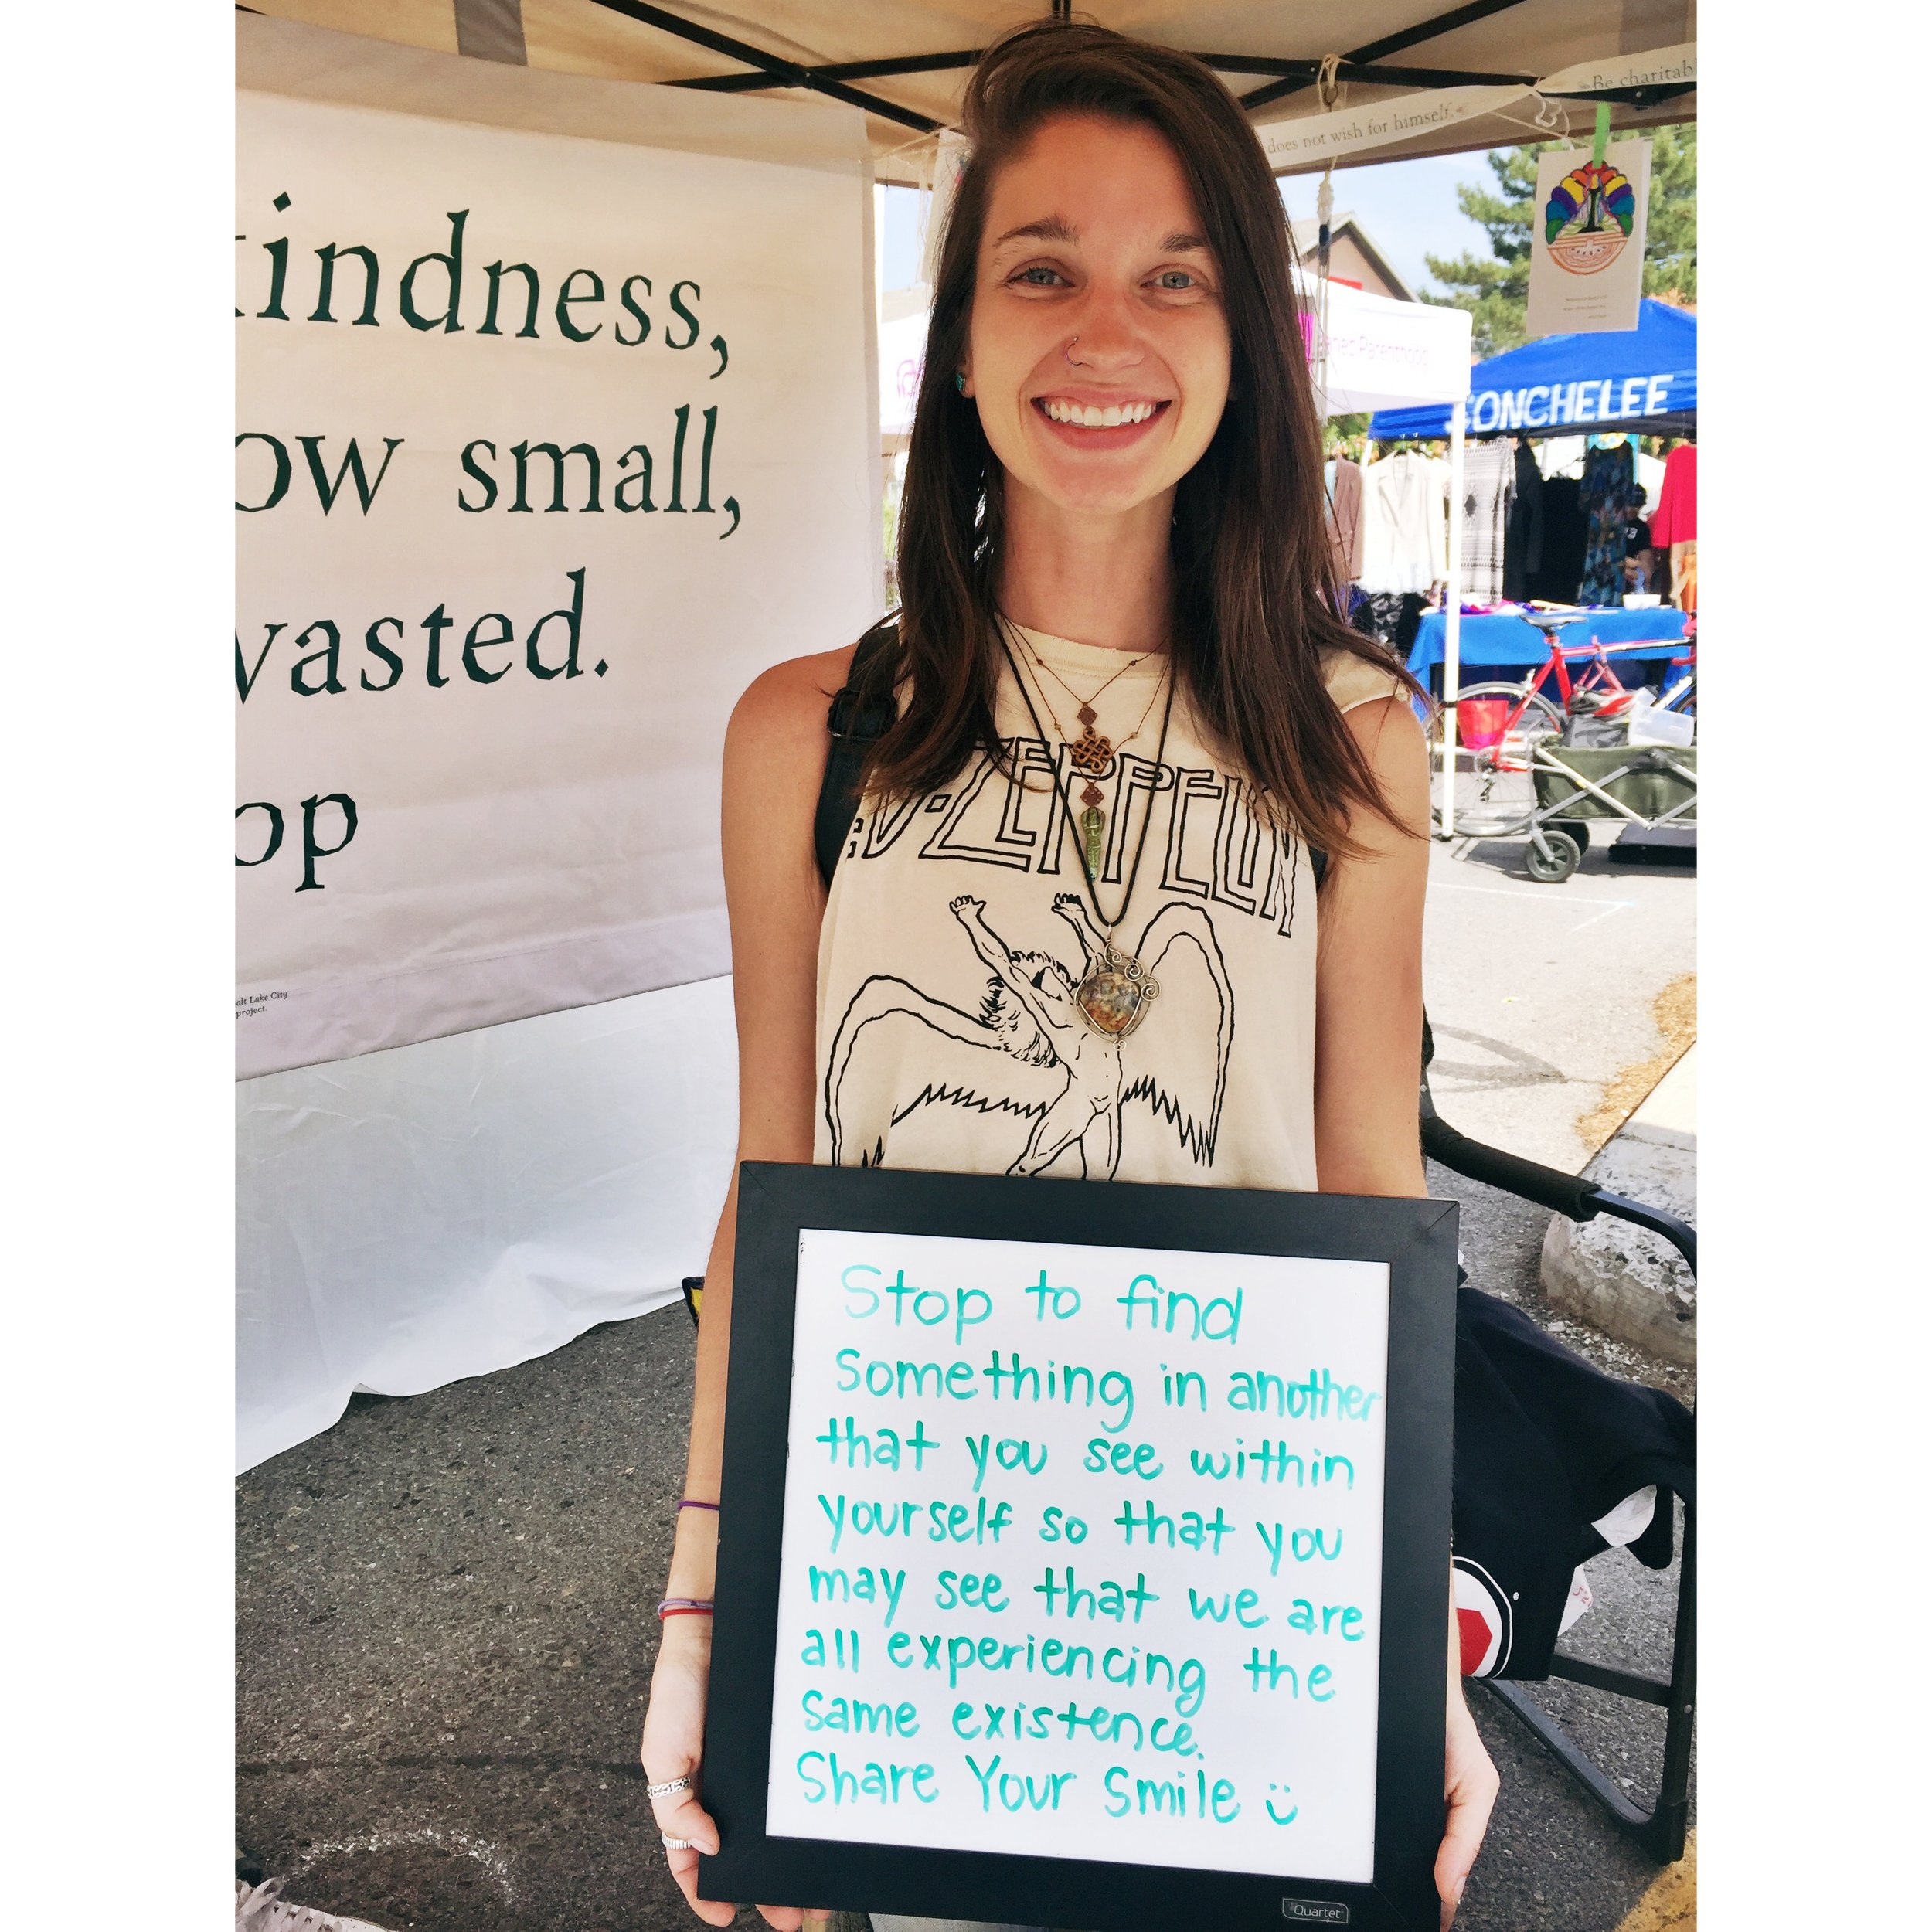 indness,
ow small,
wasted.
op
alt Lake City
project.
does not wish for himself.
Be charitabl
ned Parenthood
SONCHELEE
D-ZEPPELIN
Stop to find
something in another
that you see within
yourself so that you
may see that we are
all experiencing the
same existence.
Share Your Smile :)
Quartet